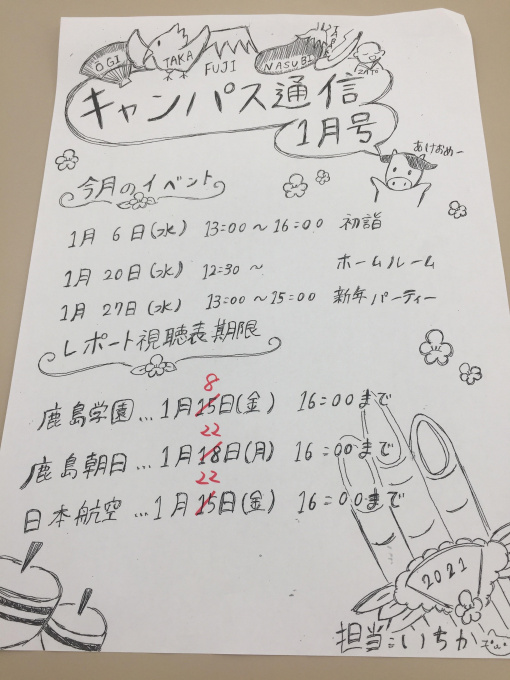 ŌGI
TAKA
FUJI
NASUBI
TABAKO
ZATŌ
キャンパス通信
1月号
あけおめー
今月のイベント
1月 6日(水) 13:00～16:00 初詣
1月 20日(水) 12:30～ ホームルーム
1月 27日(水) 13:00～15:00 新年パーティー
レポート視聴表期限
8
鹿島学園…1月15日(金) 16:00まで
22
鹿島朝日…1月18日(月) 16:00まで
22
日本航空…1月15日(金) 16:00まで
2021
担当:いちか